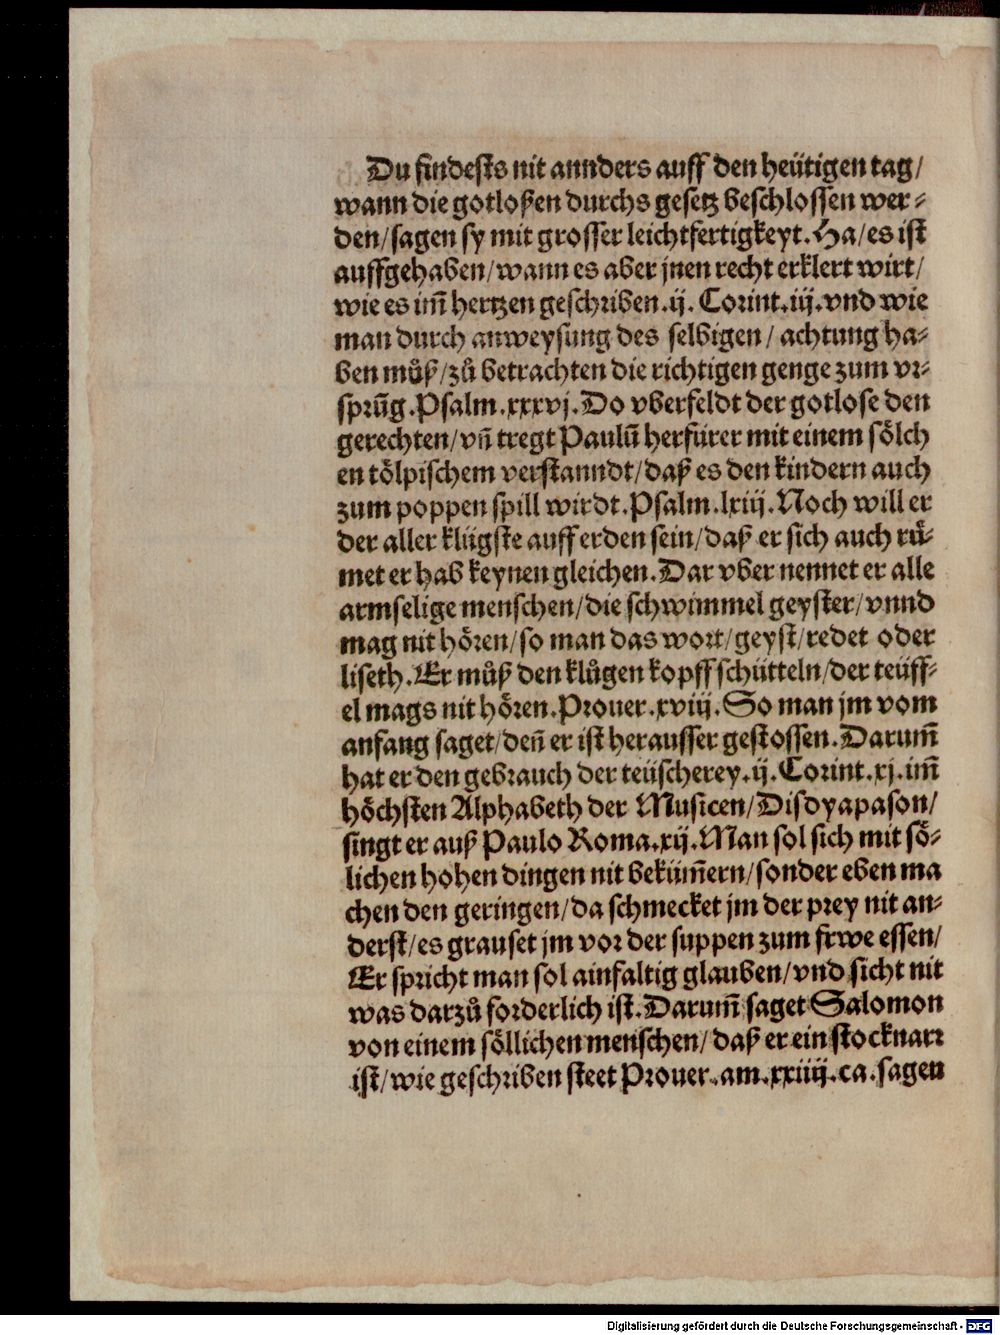 Du findests nit annders auff den heütigen tag/
wann die gotloßen durchs gesetz beschlossen wer⸗
den/sagen sy mit grosser leichtfertigkeyt. Ha/es ist
auffgehaben/wann es aber jnen recht erklert wirt/
wie es im̃ hertzen geschriben.ij. Corint.iij.vnd wie
man durch anweysung des selbigen/ achtung ha⸗
ben můß/zů betrachten die richtigen genge zum vr⸗
sprũg.Psalm.xxxvj.Do vberfeldt der gotlose den
gerechten/vñ tregt Paulũ herfürer mit einem sölch
en tölpischem verstanndt/daß es den kindern auch
zum poppen spill wirdt.Psalm.lxiij.Noch will er
der aller klügste auff erden sein/daß er sich auch rů⸗
met er hab keynen gleichen.Dar vber nennet er alle
armselige menschen/die schwimmel geyster/vnnd
mag nit hören/so man das wort/geyst/redet oder
liseth.Er můß den klůgen kopff schütteln/der teüff⸗
el mags nit hören.Prouer.xviij.So man jm vom
anfang saget/deñ er ist herausser gestossen.Darum̃
hat er den gebrauch der teüscherey.ij.Corint.xj.im̃
höchsten Alphabeth der Musicen/Disdyapason/
singt er auß Paulo Roma.xij.Man sol sich mit sö⸗
lichen hohen dingen nit beküm̃ern/sonder eben ma
chen den geringen/da schmecket jm der prey nit an⸗
derst/es grauset jm vor der suppen zum frwe essen/
Er spricht man sol ainfaltig glauben/vnd sicht nit
was darzů forderlich ist.Darum̃ saget Salomon
von einem söllichen menschen/daß er ein stocknarr
ist/wie geschriben steet Prouer.am.xxiiij.ca.sagen
Digitalisierung gefördert durch die Deutsche Forschungsgemeinschaft - DFG